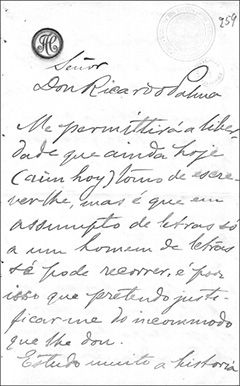 259
H
Señor
Don Ricardo Palma
Me permittirá a liber-
dade que ainda hoje
(aún hoy) tomo de escre-
ver-lhe, mas é que em
assumpto de letras só
a um homem de letras
se pode recorrer, é por
isso que pretendo justi-
ficar-me do incommodo
que lhe dou.
Estudo muito a historia